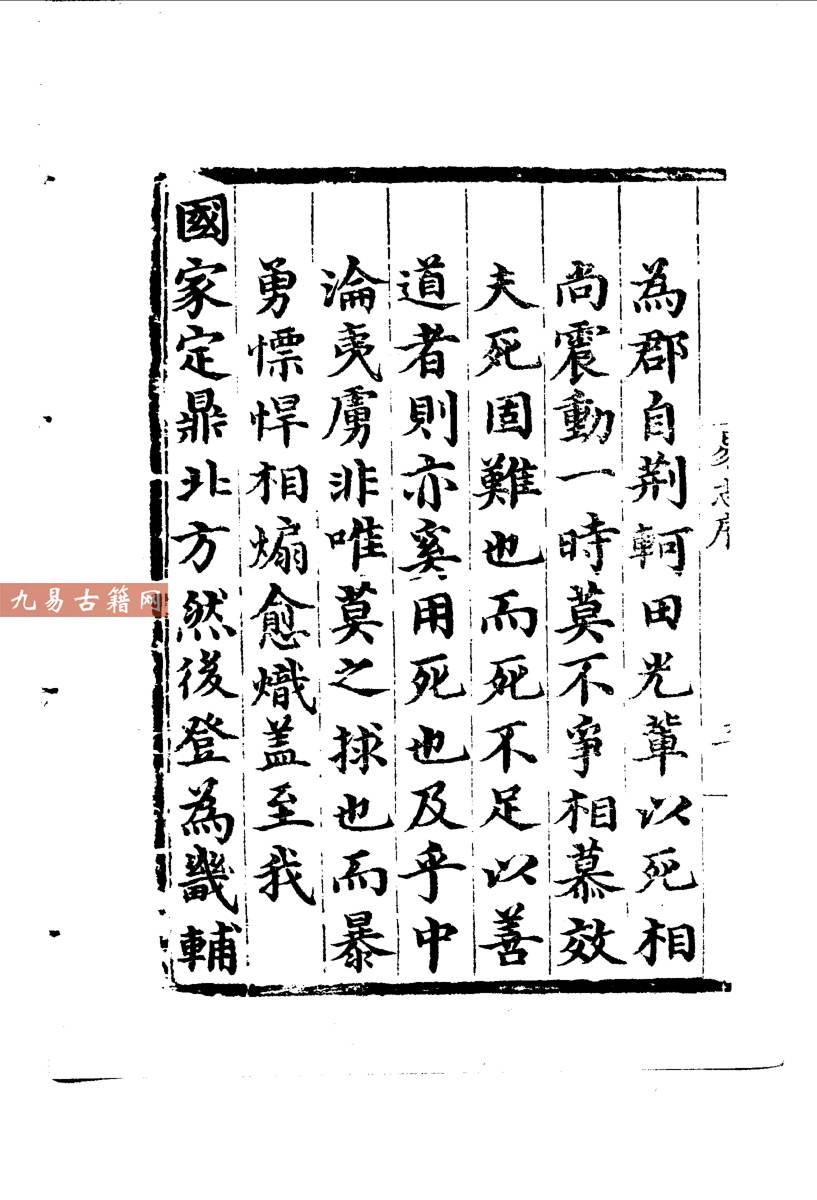 為郡自荆軻田光輩以死相
尚震動一時莫不爭相慕效
夫死固難也而死不足以善
道者則亦奚用死也及乎中
淪夷虜非唯莫之捄也而暴
勇慓悍相煽愈熾盖至我
國家定鼎北方然後登為畿輔
易志序
九易古籍网